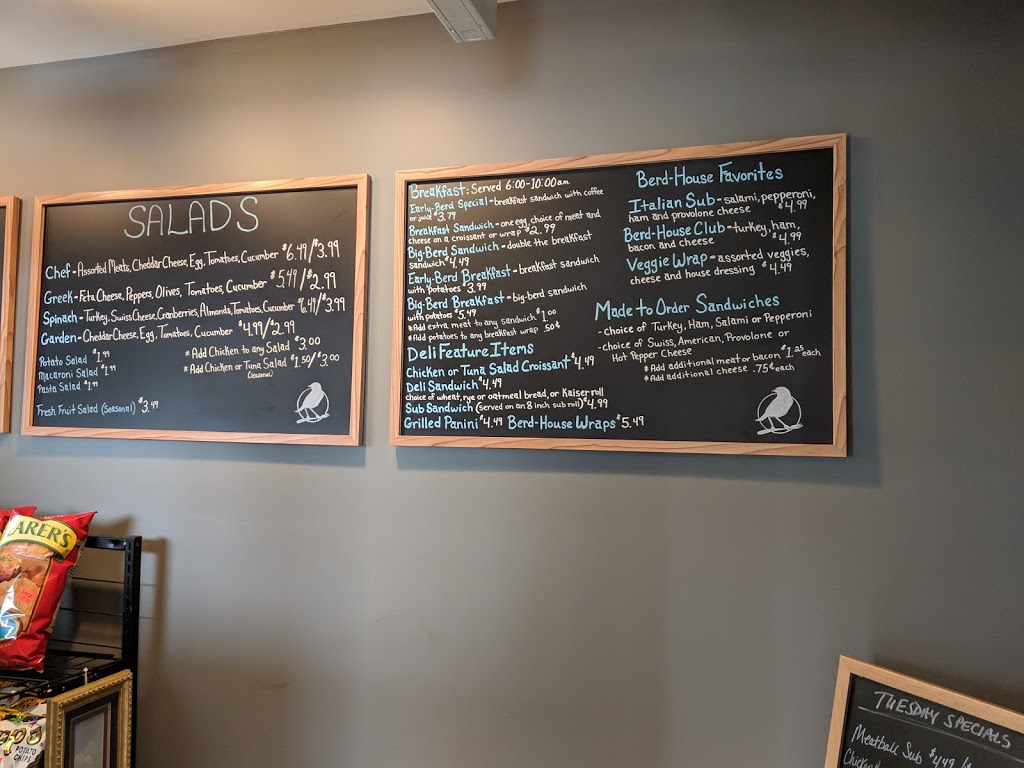 SALADS
Chef - Assorted Meats, Cheddar Cheese, Egg, Tomatoes, Cucumber $6.49/$3.99
Greek - Feta Cheese, Peppers, Olives, Tomatoes, Cucumber $5.49/$2.99
Spinach - Turkey, Swiss Cheese, Cranberries, Almonds, Tomatoes, Cucumber $6.49/$3.99
Garden - Cheddar Cheese, Egg, Tomatoes, Cucumber $4.99/$2.99
Potato Salad $1.99
Macaroni Salad $1.99
Pasta Salad $1.99
* Add Chicken to any Salad $3.00
* Add Chicken or Tuna Salad $1.50/$3.00
(Seasonal)
Fresh Fruit Salad (Seasonal) $3.49
Breakfast: Served 6:00-10:00am
Early-Berd Special - breakfast sandwich with coffee
or juice $3.79
Breakfast Sandwich - one egg, choice of meat and
cheese on a croissant or wrap $2.99
Big-Berd Sandwich - double the breakfast
sandwich $4.49
Early-Berd Breakfast - breakfast sandwich
with potatoes $3.99
Big-Berd Breakfast - big-berd sandwich
with potatoes $5.49
* Add extra meat to any sandwich $1.00
* Add potatoes to any breakfast wrap .50¢
Deli Feature Items
Chicken or Tuna Salad Croissant $4.49
Deli Sandwich $4.49
choice of wheat, rye or oatmeal bread, or Kaiser roll
Sub Sandwich (Served on an 8 inch sub roll) $4.99
Grilled Panini $4.49 Berd-House Wraps $5.49
Berd-House Favorites
Italian Sub - salami, pepperoni,
ham and provolone cheese $4.99
Berd-House Club - turkey, ham,
bacon and cheese $4.99
Veggie Wrap - assorted veggies,
cheese and house dressing $4.49
Made to Order Sandwiches
- choice of Turkey, Ham, Salami or Pepperoni
- choice of Swiss, American, Provolone or
Hot Pepper Cheese
* Add additional meat or bacon $1.25 each
* Add additional cheese .75¢ each
ARER'S
POTATO
CHIPS
TUESDAY SPECIALS
Meatball Sub $4.49